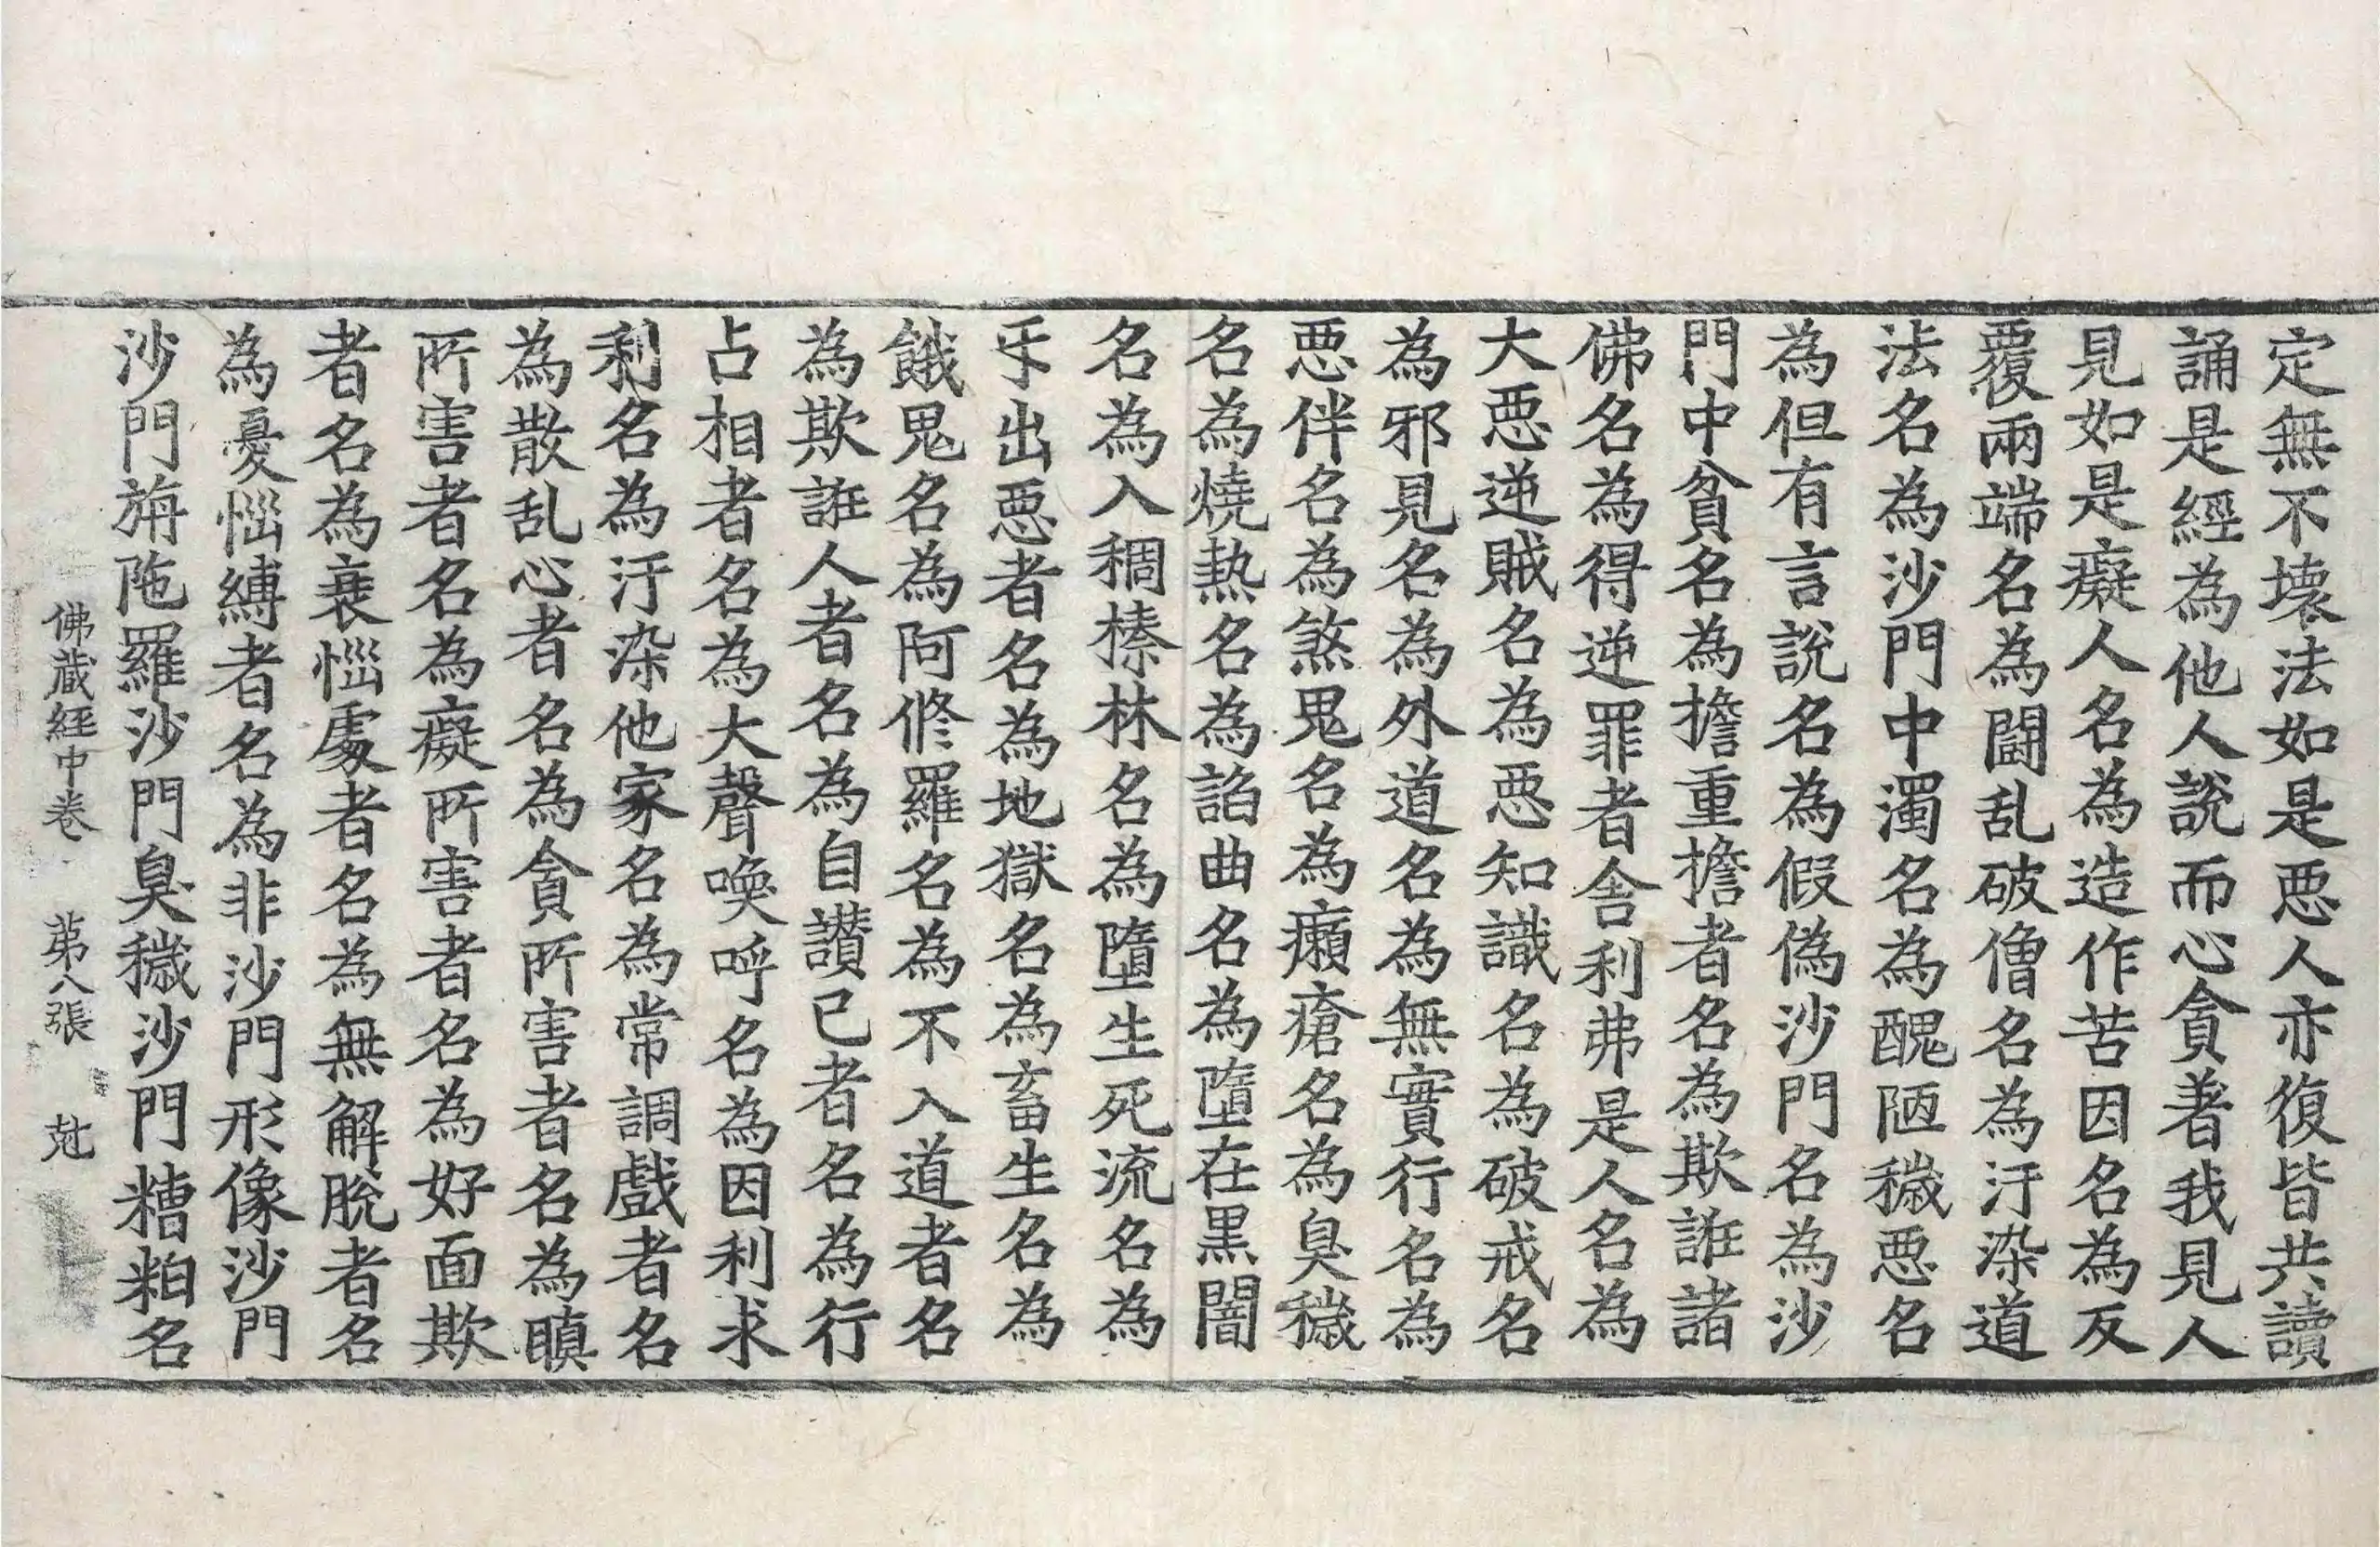 定無不壞法如是惡人亦復皆共讀
誦是經為他人說而心貪著我見人
見如是癡人名為造作苦因名為反
覆兩端名為鬪乱破僧名為汙染道
法名為沙門中濁名為醜陋穢惡名
為但有言說名為假偽沙門名為沙
門中貧名為擔重擔者名為欺誑諸
佛名為得逆罪者舍利弗是人名為
大惡逆賊名為惡知識名為破戒名
為邪見名為外道名為無實行名為
惡伴名為煞鬼名為癩瘡名為臭穢
名為燒熱名為諂曲名為墮在黑闇
名為入稠榛林名為墮生死流名為
乐出惡者名為地獄名為畜生名為
餓鬼名為阿修羅名為不入道者名
為欺誑人者名為自讚已者名為行
占相者名為大聲喚呼名為因利求
利名為汙染他家名為常調戲者名
為散乱心者名為貪所害者名為瞋
所害者名為癡所害者名為好面欺
者名為衰惱處者名為無解脫者名
為憂惱縛者名為非沙門形像沙門
沙門旃陁羅沙門臭穢沙門糟粕名
佛藏經中卷 苐八張 尅